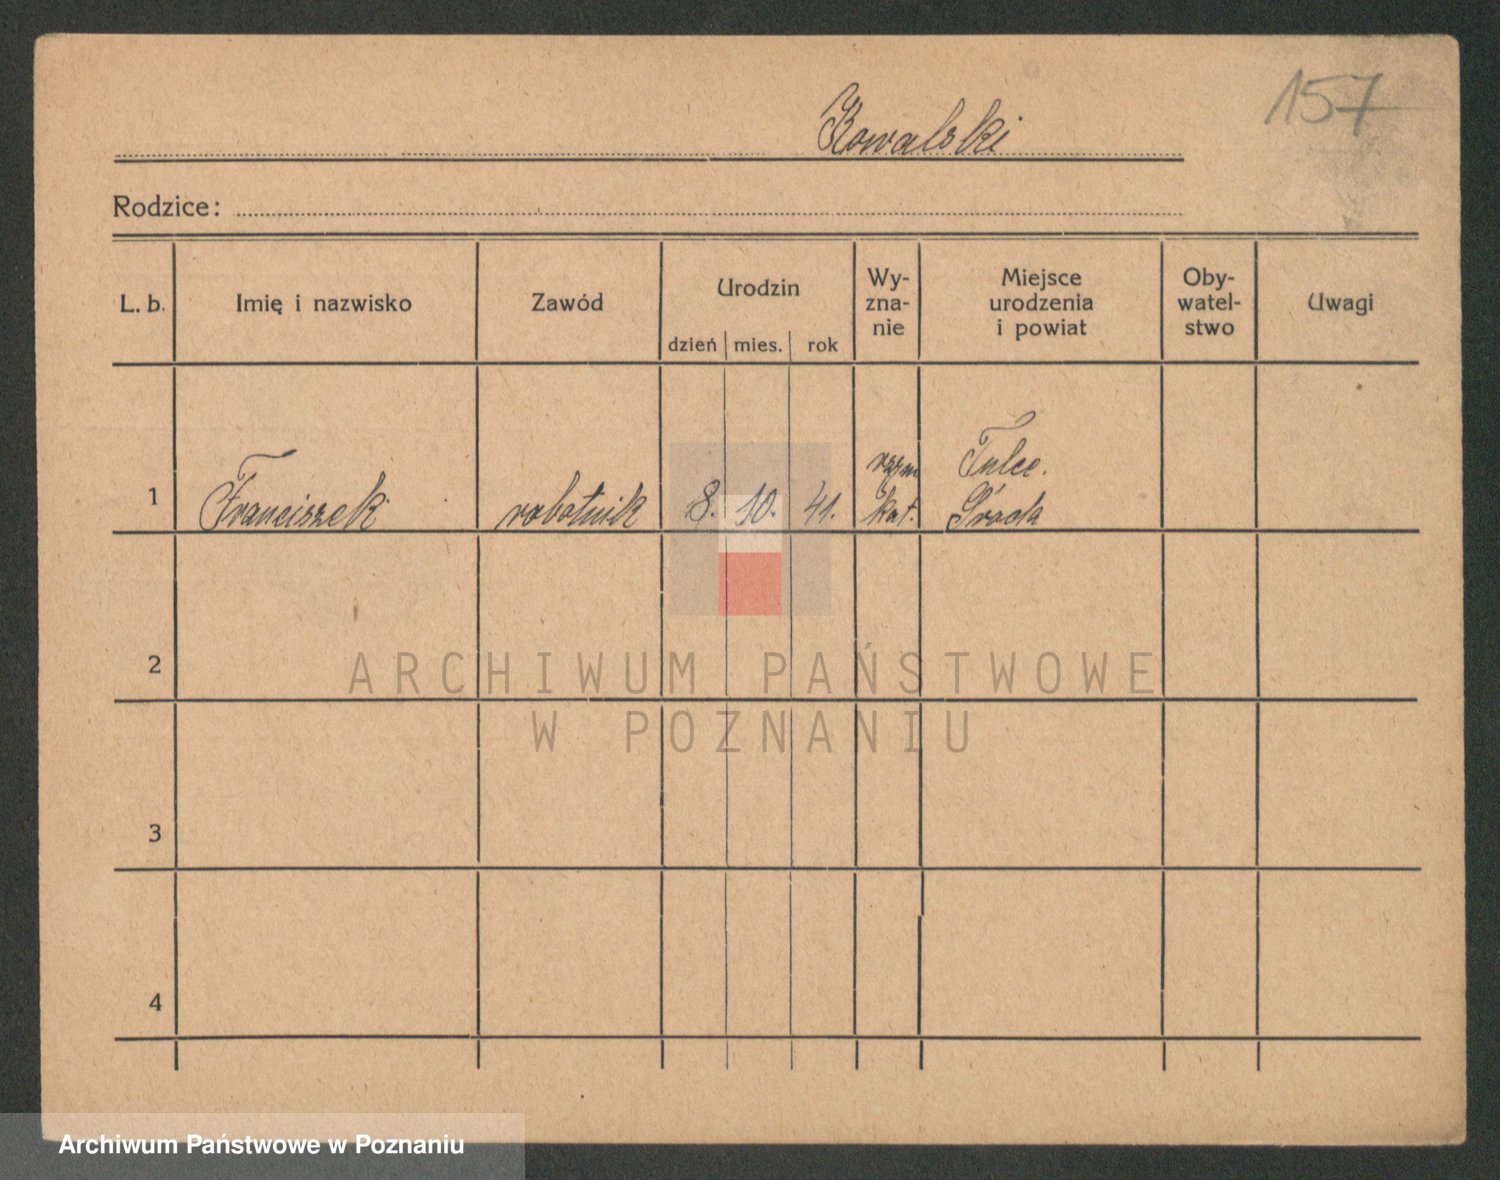 157
Kowalski
Rodzice:
L. b.
Imię i nazwisko
Zawód
Urodzin
dzień mies. rok
Wy-
zna-
nie
Miejsce
urodzenia
i powiat
Oby-
watel-
stwo
Uwagi
1 Franciszek robotnik 8. 10. 41. rzym kat. Tulce. Środa
2
3
4
ARCHIWUM PAŃSTWOWE
W POZNANIU
Archiwum Państwowe w Poznaniu